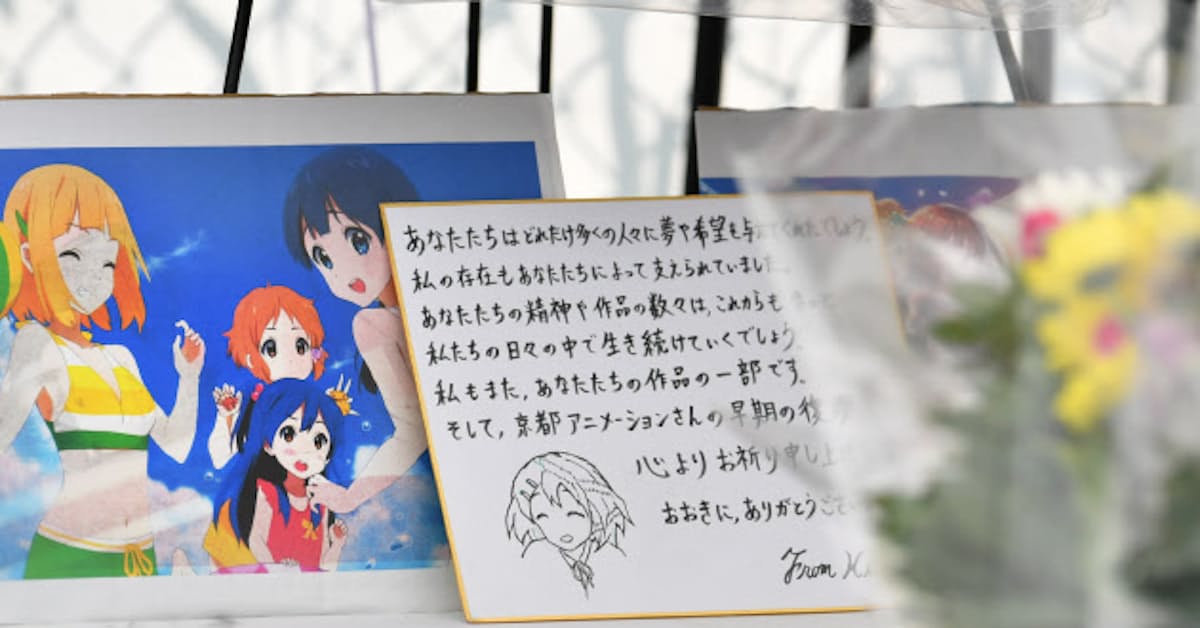 あなたたちはどれだけ多くの人々に夢や希望も与えてくれたでしょう。
私の存在もあなたたちによって支えられていました
あなたたちの精神や作品の数々は、これからも
私たちの日々の中で生き続けていくでしょう
私もまた、あなたたちの作品の一部です。
そして、京都アニメーションさんの早期の復
心よりお祈り申し上
おおきに、ありがとうござ
From